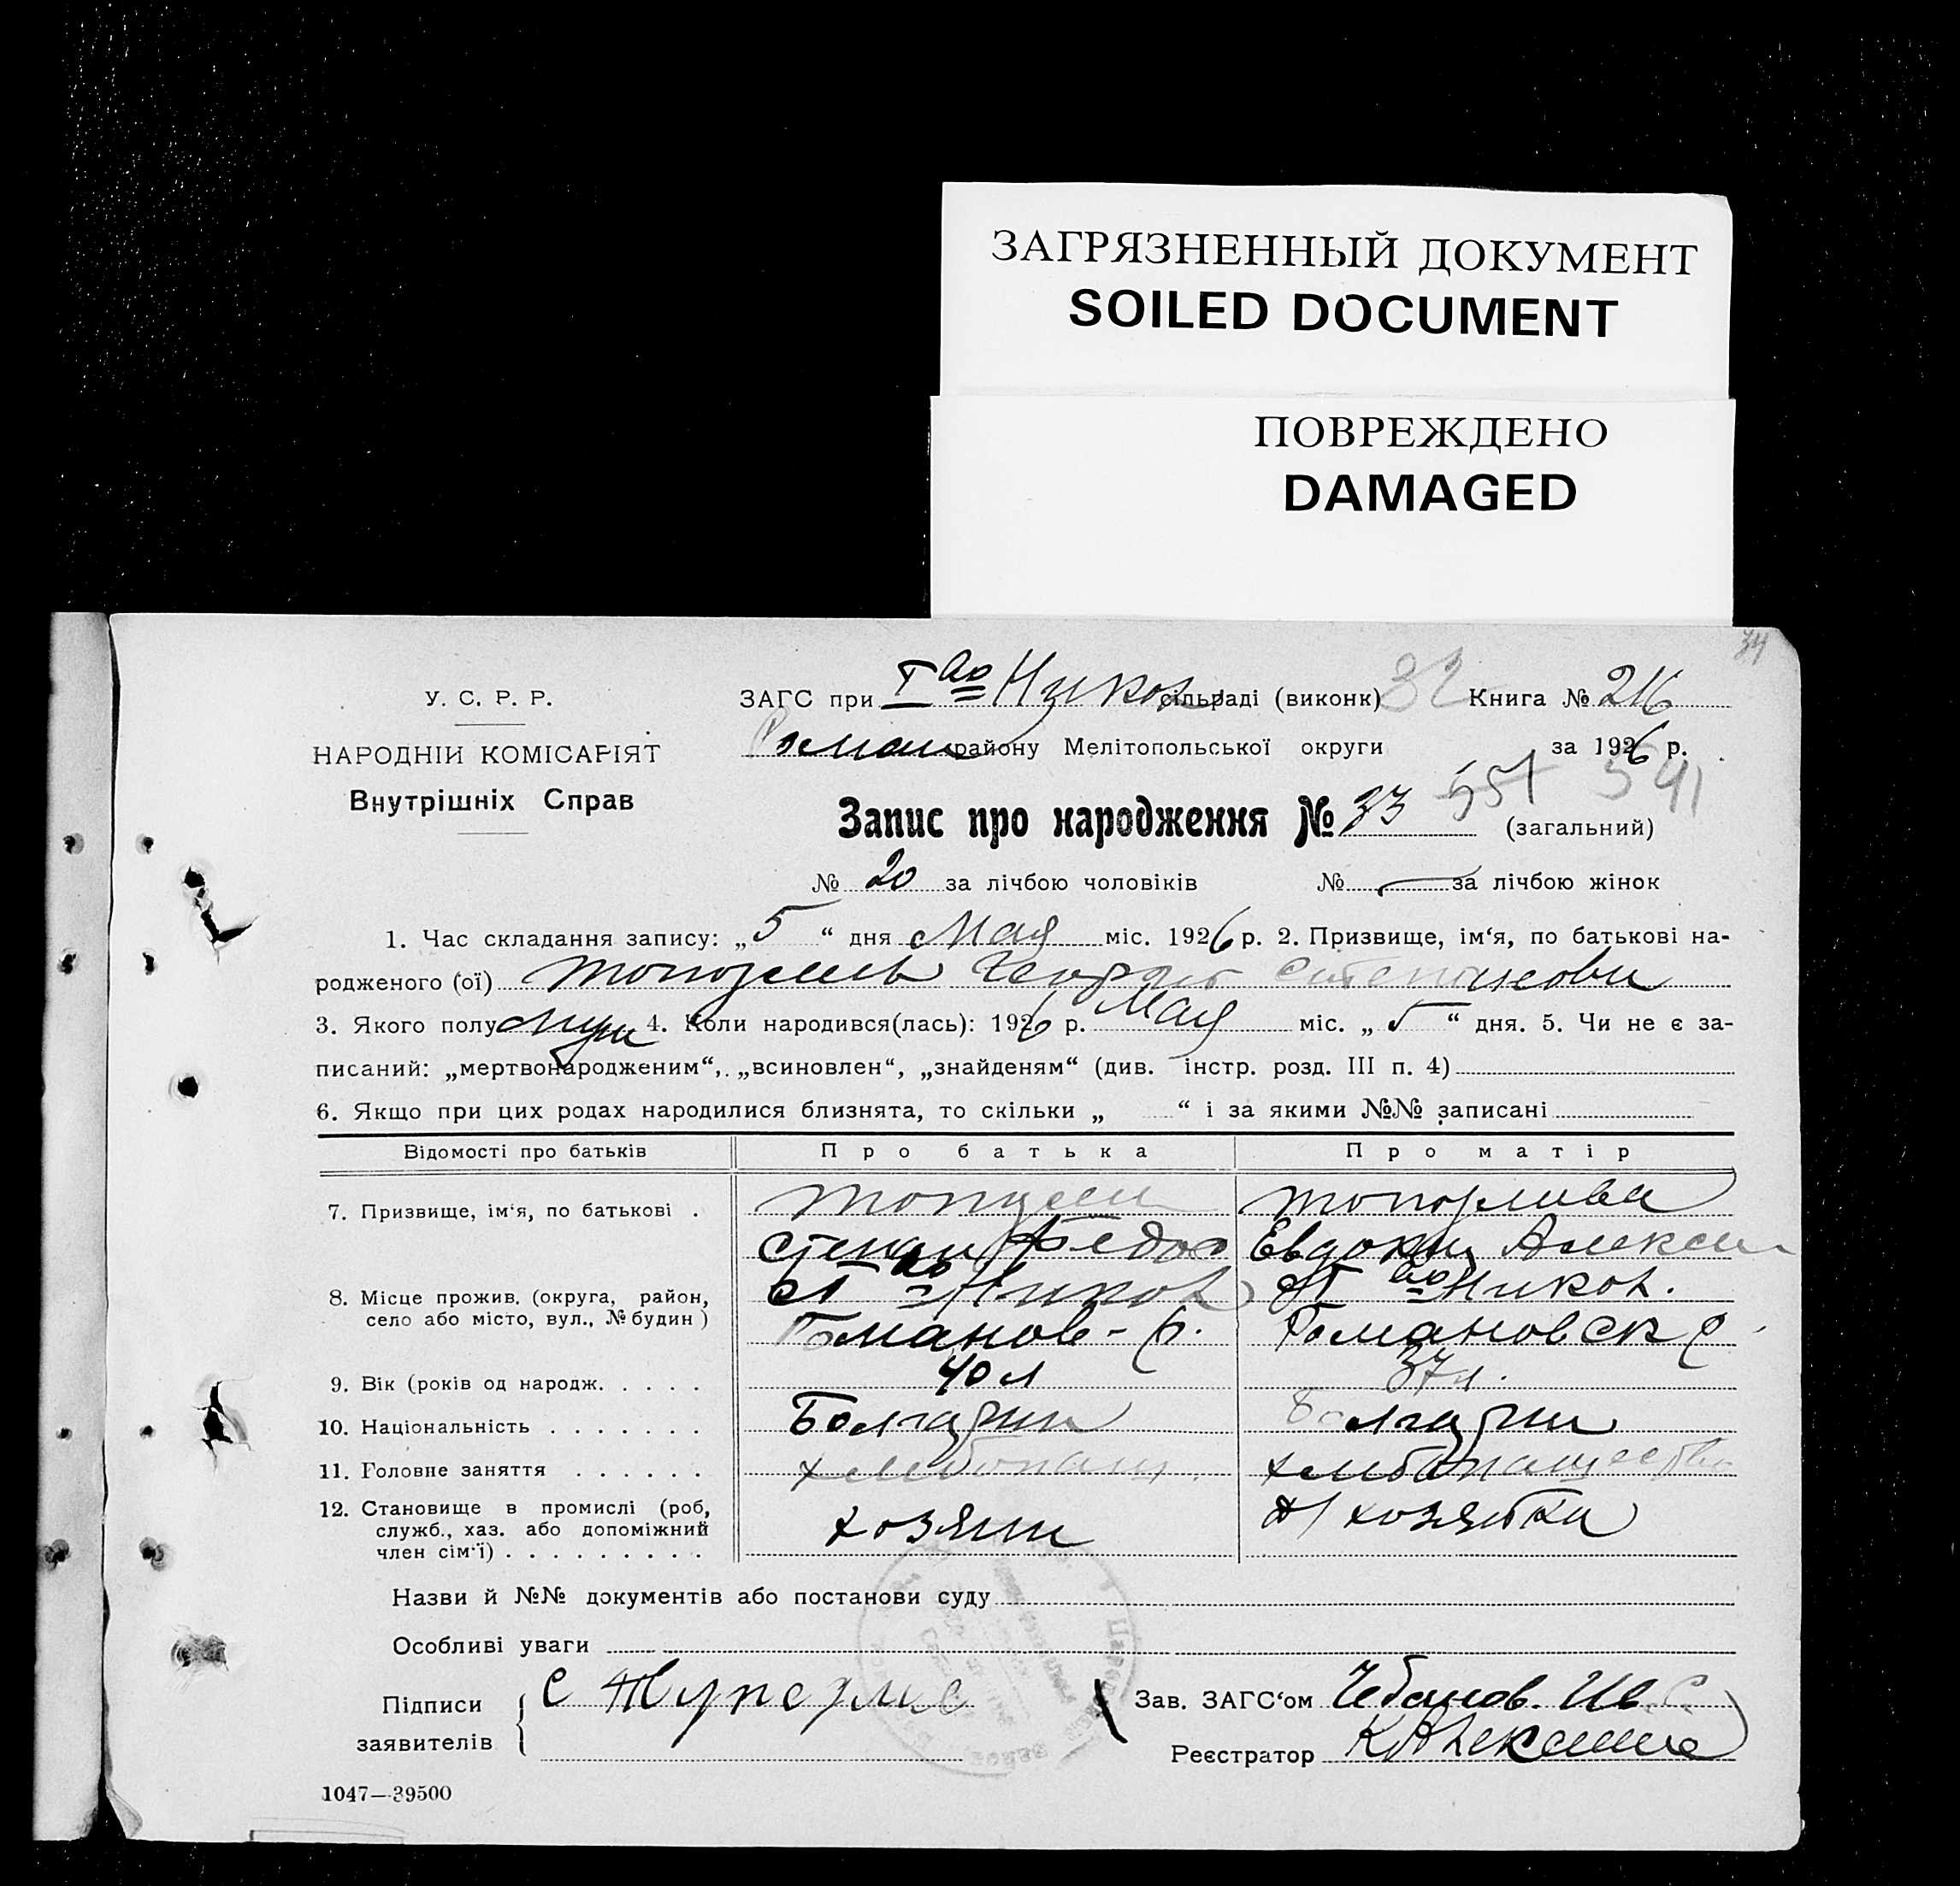 ЗАГРЯЗНЕННЫЙ ДОКУМЕНТ
SOILED DOCUMENT
ПОВРЕЖДЕНО
DAMAGED
34
У. С. Р. Р.
НАРОДНІЙ КОМІСАРІЯТ
Внутрішніх Справ
ЗАГС при I ао Никол сільраді (виконк) 32 Книга № 216
Роман району Мелітопольської округи за 1926 р.
Запис про народження № 33 551 541 (загальний)
№ 20 за лічбою чоловіків № — за лічбою жінок
1. Час складання запису: „5“ дня Мая міс. 1926 р. 2. Призвище, ім‘я, по батькові на-
родженого (ої) Степанови
3. Якого полу муж 4. Коли народився(лась): 1926 р. Мая міс. „5“ дня. 5. Чи не є за-
писаний: „мертвонародженим“, „всиновлен“, „знайденям“ (див. інстр. розд. III п. 4)
6. Якщо при цих родах народилися близнята, то скільки „ “ і за якими №№ записані
Відомості про батьків Про батька Про матір
7. Призвище, ім‘я, по батькові .
Степан Федо Евдокия Алексе
8. Місце прожив. (округа, район, село або місто, вул., № будин) Никол Никол.
Романов-р. Романовск р
9. Вік (років од народж. . . . . 40 л 37 л.
10. Національність . . . . . . . Болгарин Болгарин
11. Головне заняття . . . . . . хлебопащ. хлебопащество
12. Становище в промислі (роб, служб., хаз. або допоміжний член сім‘ї) . . . . . . . . . хозяин д/хозяйка
Назви й №№ документів або постанови суду
Особливі уваги
Підписи заявителів С
Зав. ЗАГС‘ом Чебанов. Ив
Реєстратор
1047—39500